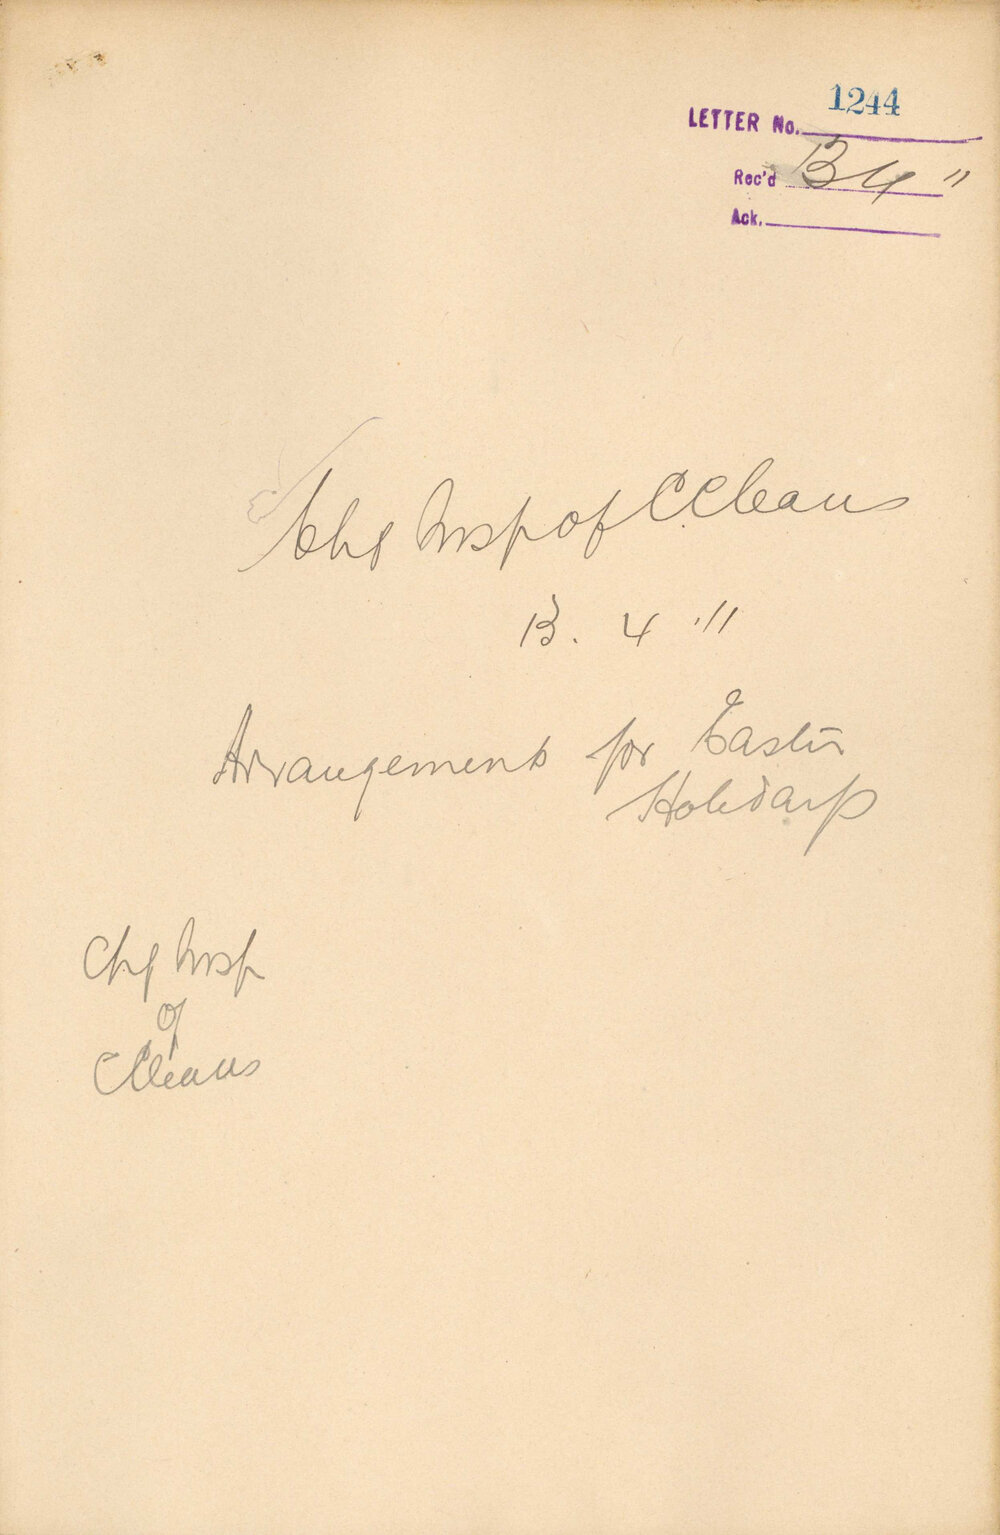 1244
LETTER No.
Rec'd 13 4 11
Ack.
Chf Insp of C Cleans
13. 4 '11
Arrangements for Easter
Holidays
Chf Insp
of
C Cleans